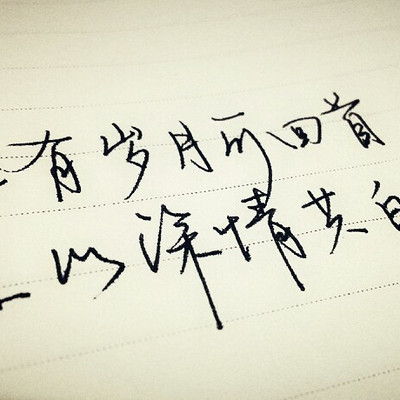 有岁月可回首
以深情共白